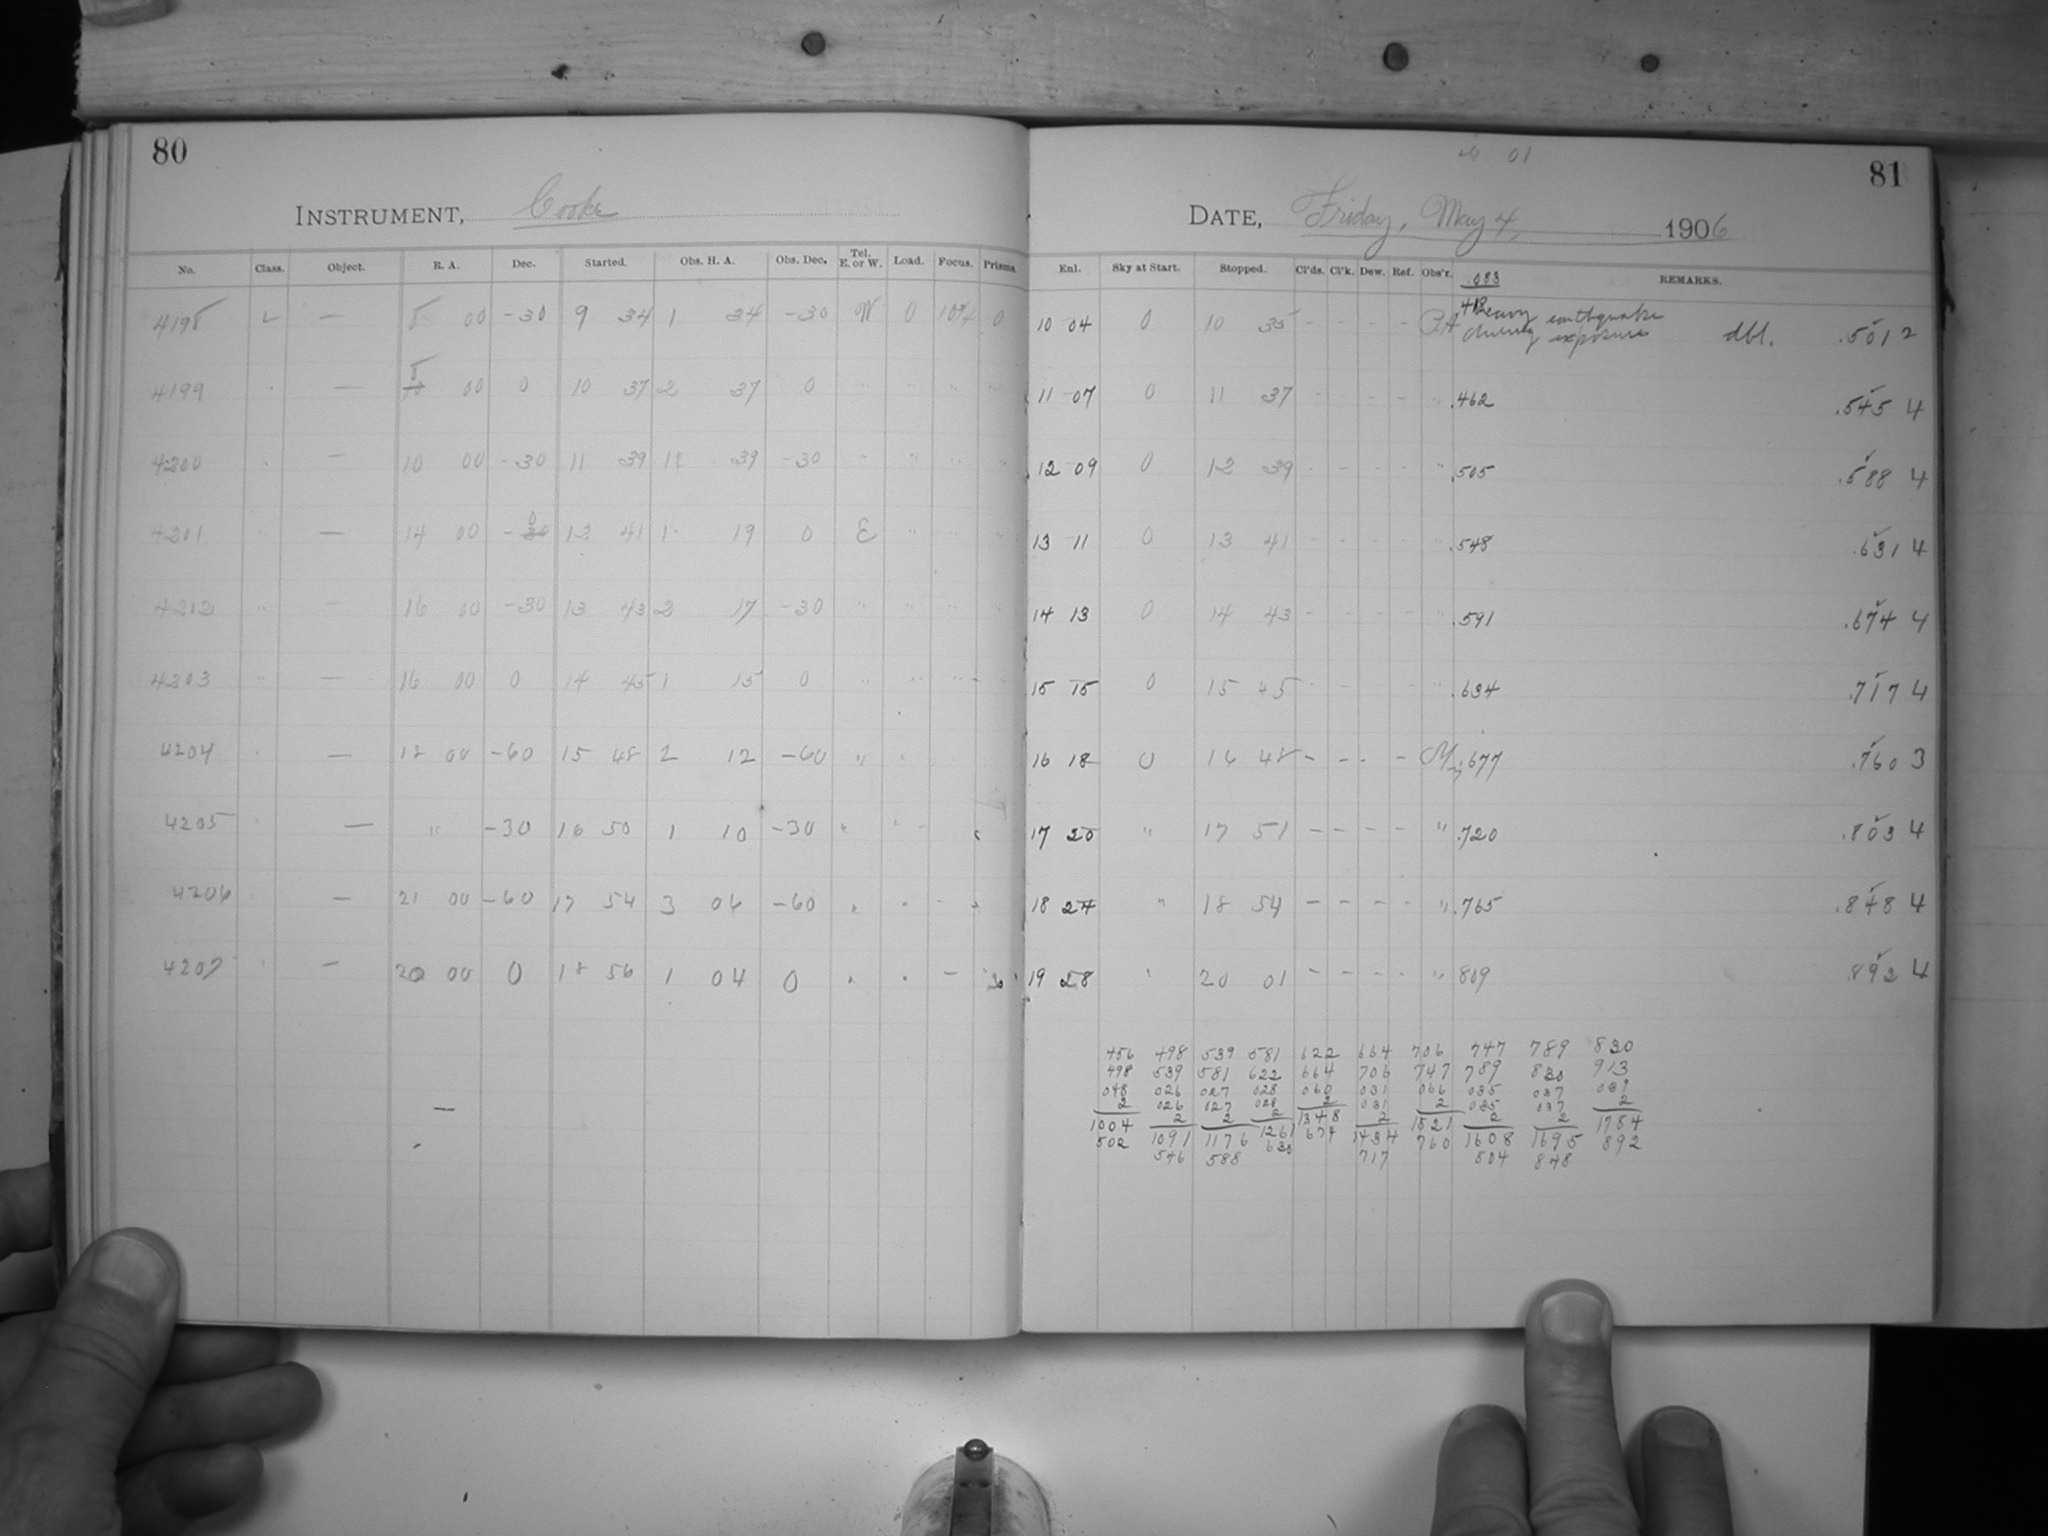 80
INSTRUMENT, Cooke
No. Class. Object. R. A. Dec. Started. Obs. H. A. Obs. Dec. Tel. E. or W. Load. Focus. Prisms.
4198 L — 8 00 -30 9 34 1 34 -30 W 0 0
4199 " — 8 00 0 10 37 2 37 0 " " " "
4200 " — 10 00 -30 11 39 39 -30 " " " "
4201 " — 14 00 - 0 12 41 1 19 0 E " " "
4202 " — 16 00 -30 13 43 2 17 -30 " " " "
4203 " — 16 00 0 14 45 1 15 0 " " " "
4204 — 18 00 -60 15 48 2 12 -60 "
4205 — " -30 16 50 1 10 -30 "
4206 — 21 00 -60 17 54 3 06 -60
4207 — 20 00 0 18 56 1 04 0
—
01
81
DATE, Friday, May 4, 1906
Enl. Sky at Start. Stopped. Cl'ds. Cl'k. Dew. Ref. Obs'r. .083 REMARKS.
10 04 0 10 35 - - - - .418 Heavy earthquake during exposure dbl. .501 2
11 07 0 11 37 - - - - " .462 .545 4
12 09 0 12 39 - - - - " .505 .588 4
13 11 0 13 41 - - - - " .548 .631 4
14 13 0 14 43 - - - - " .591 .674 4
15 15 0 15 45 - - - - " .634 .717 4
16 18 0 16 48 - - - - .677 .760 3
17 20 " 17 51 - - - - " .720 .803 4
18 24 " 18 54 - - - - " .765 .848 4
19 28 " 20 01 - - - - " 809 .892 4
456 498 539 581 622 664 706 747 789 830
498 539 581 622 664 706 747 789 830 913
048 026 027 028 060 031 066 035 037 039
2 026 027 028 2 031 2 035 037 2
1004 2 2 2 1348 2 1521 2 2 1784
502 1091 1176 1261 674 1434 760 1608 1695 892
546 588 630 717 804 848